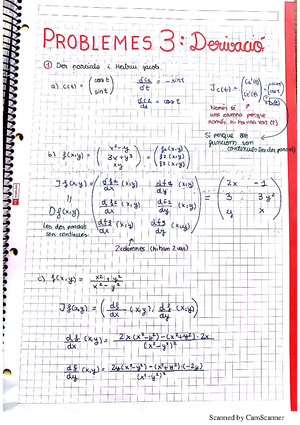 PROBLEMES 3: Derivació
① Der parcials i Matriu jacob
a) c(t) = (cos t, sin t) dc1/dt = -sin t Jc(t) = (c1'(t), c2'(t))
dc2/dt = cos t
Només si
una columna perquè
només hi ha una var (t)
Si perquè les
funcions són
contínues
b) f(x,y) = (x²-y, 3x+y³, xy) = (f1(x,y), f2(x,y), f3(x,y))
Jf(x,y) = (df1/dx (x,y) df1/dy (x,y) = (2x -1
Df(x,y) df2/dx (x,y) df2/dy (x,y) 3 3y²
les der parcials df3/dx (x,y) df3/dy (x,y)) y x)
són contínues
2 columnes (hi han 2 var)
c) f(x,y) = x²+y² / x²-y²
Jf(x,y) = (df/dx (x,y), df/dy (x,y))
df/dx (x,y) = 2x(x²-y²)-(x²+y²)·2x / (x²-y²)²
df/dy (x,y) = 2y(x²-y²)-(x²+y²)·(-2y) / (x²-y²)²
Scanned by CamScanner